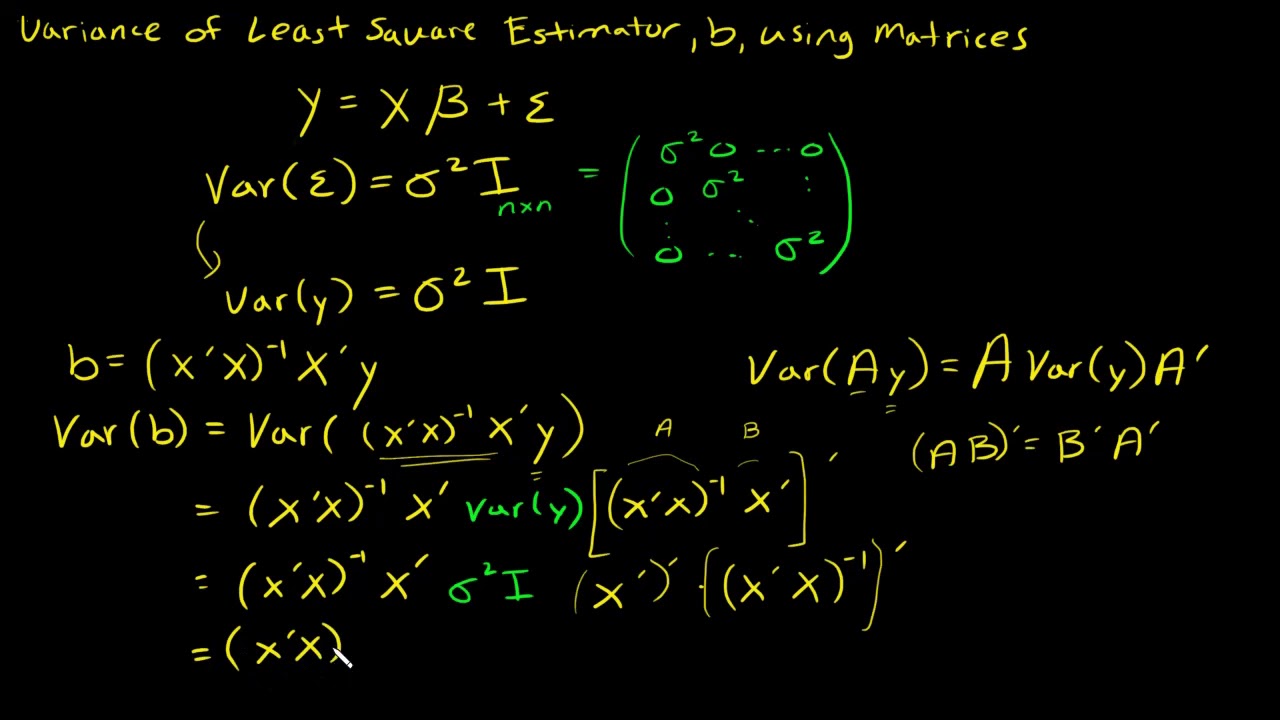 Variance of Least Square Estimator, b, using Matrices
y = X β + ε
Var(ε) = σ² I n×n = ( σ² 0 ... 0
0 σ² :
: ⋱
0 ... σ² )
Var(y) = σ² I
b = (X′X)⁻¹ X′y
Var(Ay) = A Var(y) A′
Var(b) = Var( (X′X)⁻¹ X′y )
(AB)′ = B′A′
A B
= (X′X)⁻¹ X′ Var(y) [(X′X)⁻¹ X′]′
= (X′X)⁻¹ X′ σ² I (X′)′ {(X′X)⁻¹}′
= (X′X)